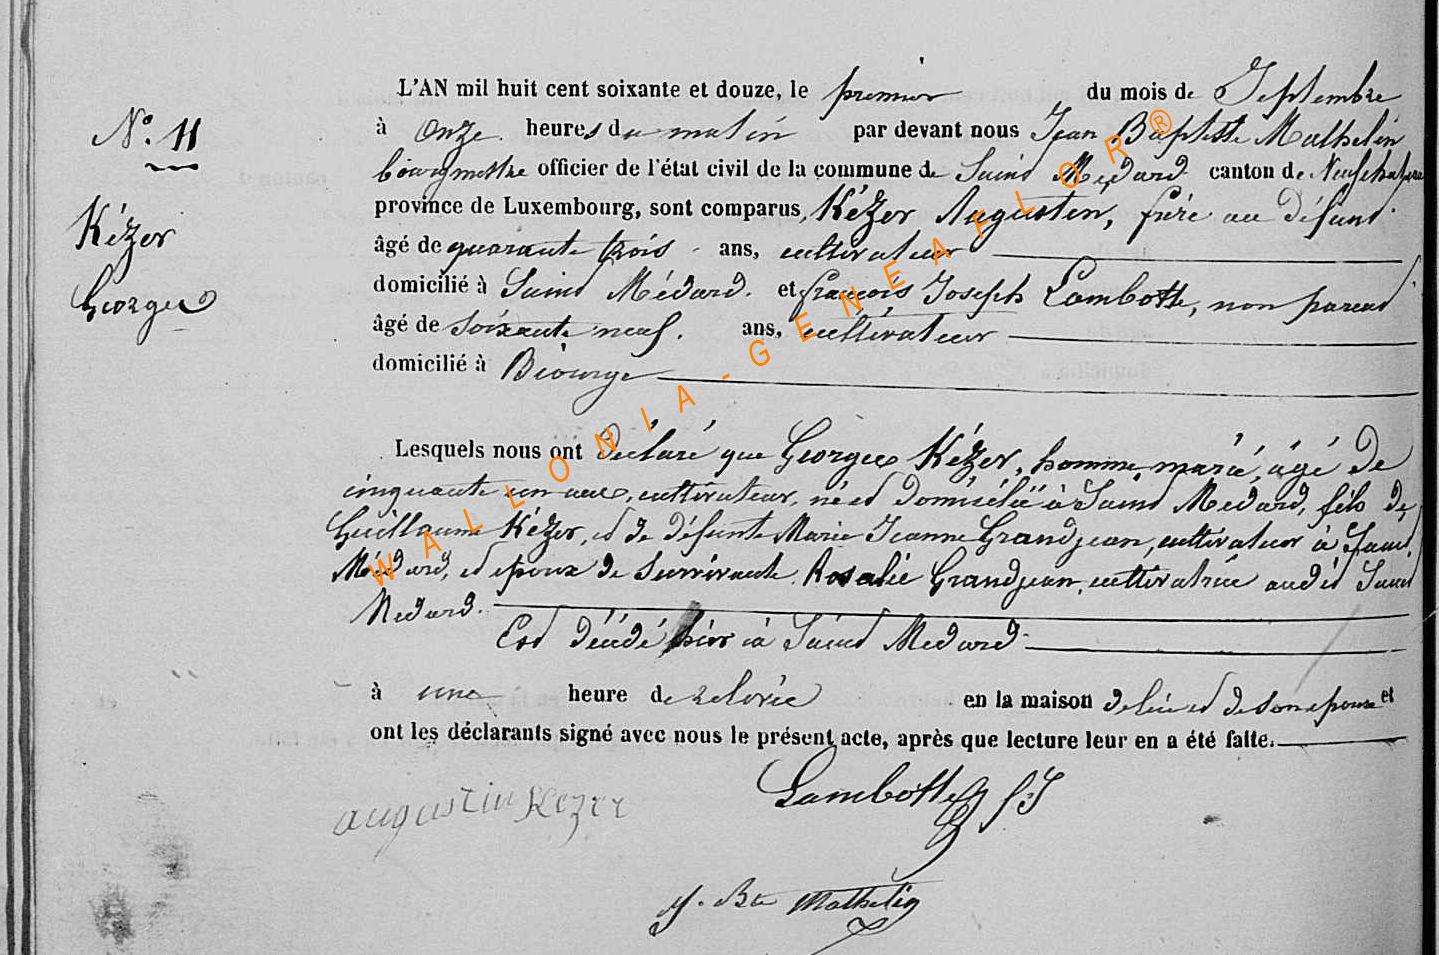 L'AN mil huit cent soixante et douze, le premier du mois de Septembre
N° 11
à onze heures du matin par devant nous Jean Baptiste Mathelin
bourgmestre officier de l'état civil de la commune de Saint Médard canton de Neufchateau
Kézer
Georges
province de Luxembourg, sont comparus, Kézer Augustin, frère au défunt
âgé de quarante trois ans, cultivateur
domicilié à Saint Médard. et françois Joseph Lambotte, non parent
âgé de soixante neuf. ans, cultivateur
domicilié à Biourge
Lesquels nous ont déclaré que Georges Kézer, homme marié, âgé de
cinquante un ans, cultivateur, né et domicilié à Saint Médard, fils de
Guillaume Kézer, et de défunte Marie Jeanne Grandjean, cultivateur à Saint
Médard, et époux de survivante Rosalie Grandjean, cultivatrice audit Saint
Médard.
Est décédé hier à Saint Medard
à une heure de relevée en la maison de lui et de son epouse et
ont les déclarants signé avec nous le présent acte, après que lecture leur en a été faite.
augustin Kezer
Lambotte f:J
J. Bte Mathelin
WALLONIA-GENEAFLOR®